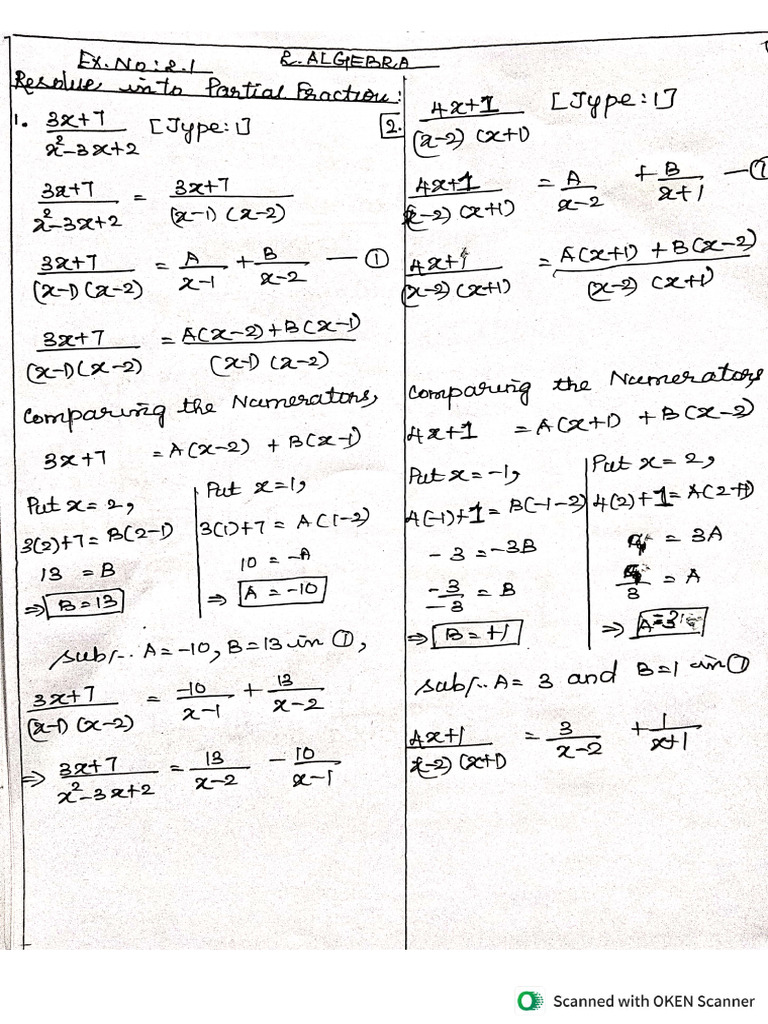 Ex.No:2.1 2. ALGEBRA
Resolve into Partial Fraction:
1. (3x+7)/(x²-3x+2) [Type:1]
(3x+7)/(x²-3x+2) = (3x+7)/((x-1)(x-2))
(3x+7)/((x-1)(x-2)) = A/(x-1) + B/(x-2) — ①
(3x+7)/((x-1)(x-2)) = (A(x-2)+B(x-1))/((x-1)(x-2))
Comparing the Numerators,
3x+7 = A(x-2) + B(x-1)
Put x=2,
3(2)+7=B(2-1)
13 = B
⇒ B=13
Put x=1,
3(1)+7 = A(1-2)
10 = -A
⇒ A = -10
sub/.. A=-10, B=13 in ①,
(3x+7)/((x-1)(x-2)) = -10/(x-1) + 13/(x-2)
⇒ (3x+7)/(x²-3x+2) = 13/(x-2) - 10/(x-1)
2. (4x+1)/((x-2)(x+1)) [Type:1]
(4x+1)/((x-2)(x+1)) = A/(x-2) + B/(x+1) — ①
(4x+1)/((x-2)(x+1)) = (A(x+1)+B(x-2))/((x-2)(x+1))
Comparing the Numerators
4x+1 = A(x+1) + B(x-2)
Put x=-1,
4(-1)+1=B(-1-2)
-3=-3B
-3/-3 = B
⇒ B=+1
Put x=2,
4(2)+1=A(2+1)
= 3A
/3 = A
⇒ A=3
sub/.. A= 3 and B=1 in ①
(4x+1)/((x-2)(x+1)) = 3/(x-2) + 1/(x+1)
Scanned with OKEN Scanner